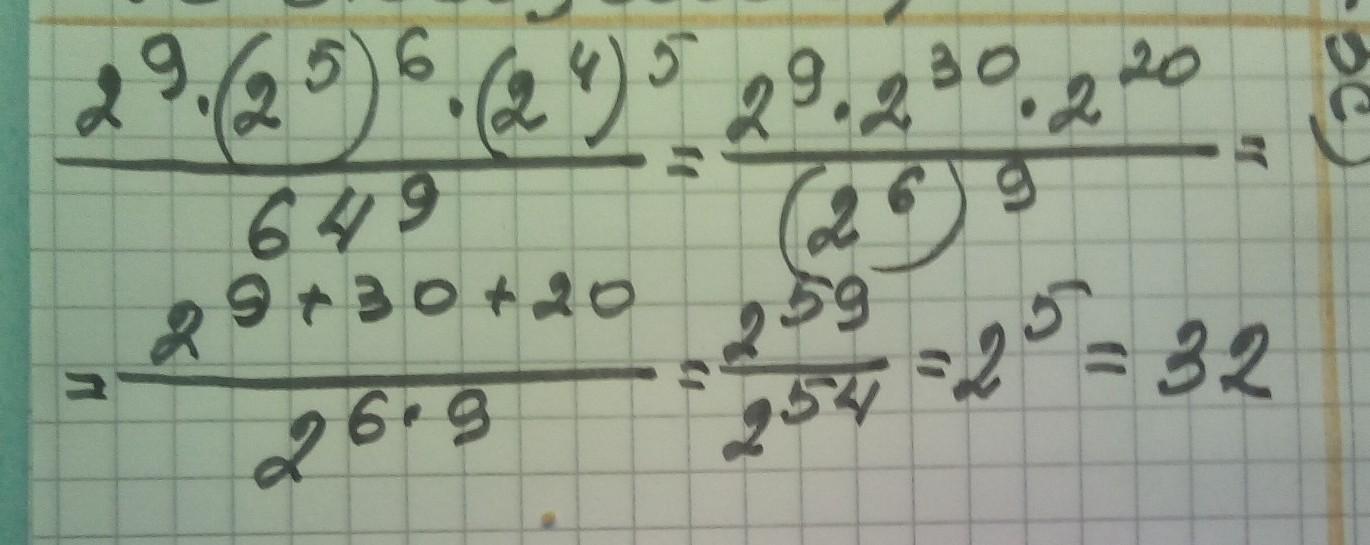 2⁹·(2⁵)⁶·(2⁴)⁵ / 64⁹ = 2⁹·2³⁰·2²⁰ / (2⁶)⁹ =
= 2⁹⁺³⁰⁺²⁰ / 2⁶·⁹ = 2⁵⁹ / 2⁵⁴ = 2⁵ = 32